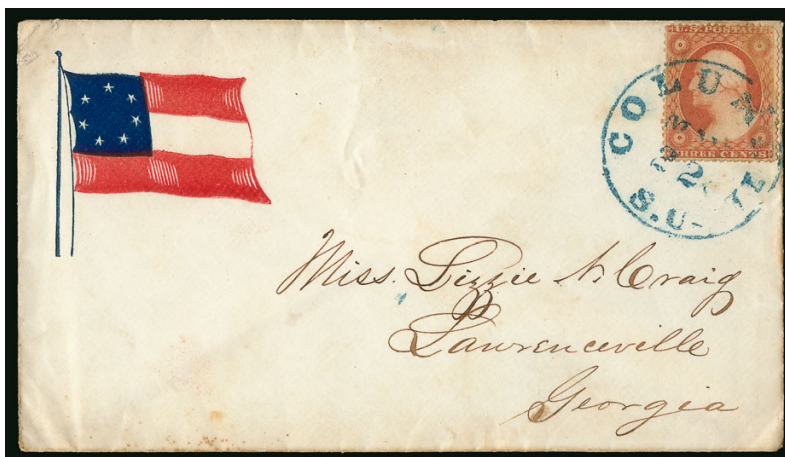 U.S. POSTAGE
THREE CENTS
COLUM
S.C.
Miss. Lizzie N. Craig
Lawrenceville
Georgia